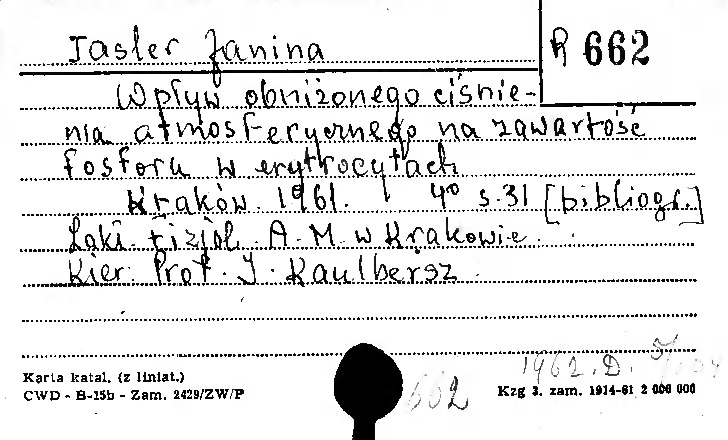 Jasler Janina
R 662
Wpływ obniżonego ciśnie-
nia atmosferycznego na zawartość
fosforu w erytrocytach
Kraków 1961. 4° s.31 [bibliogr.]
Zakł. Fizjol. A.M. w Krakowie.
Kier. Prof. J. Kaulbersz
1962. D.
Karta katal. (z liniat.)
CWD - B-15b - Zam. 2429/ZW/P
662
Kzg 3. zam. 1914-61 2 000 000